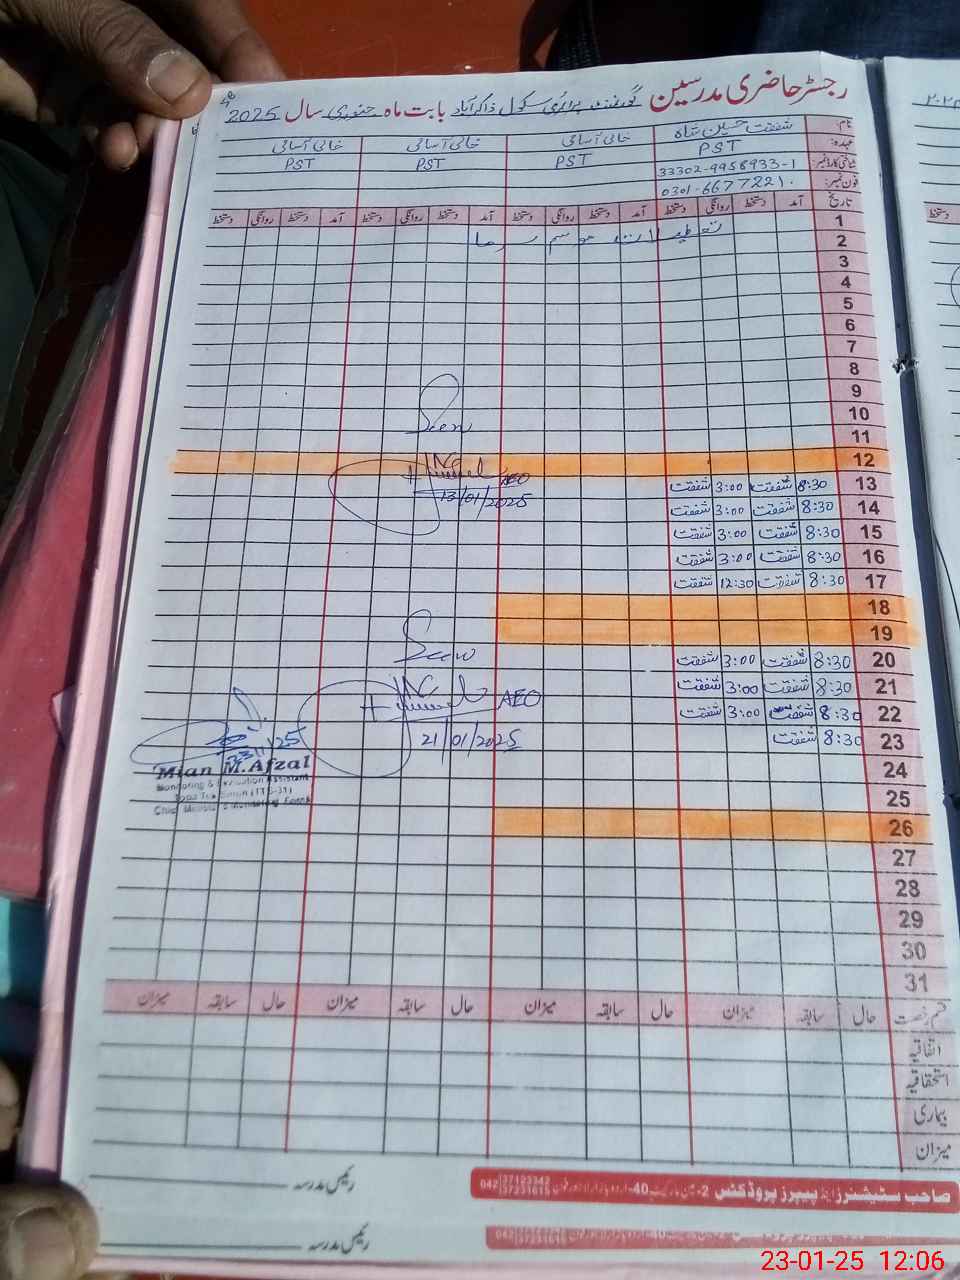 رجسٹر حاضری مدرسین گورنمنٹ پرائمری سکول ذاکر آباد بابت ماہ جنوری سال 2025
نام: شفقت حسین شاہ خالی آسامی خالی آسامی خالی آسامی
عہدہ: PST PST PST PST
شناختی کارڈ نمبر: 33302-9958933-1
فون نمبر: 0301-6677221
تاریخ آمد دستخط روانگی دستخط آمد دستخط روانگی دستخط آمد دستخط روانگی دستخط آمد دستخط روانگی دستخط
1
2 تعطیلات موسم سرما
3
4
5
6
7
8
9
10
11 Seen
12
13 8:30 شفقت 3:00 شفقت AEO
13/01/2025
14 8:30 شفقت 3:00 شفقت
15 8:30 شفقت 3:00 شفقت
16 8:30 شفقت 3:00 شفقت
17 8:30 شفقت 12:30 شفقت
18
19
20 8:30 شفقت 3:00 شفقت Seen
21 8:30 شفقت 3:00 شفقت AEO
22 8:30 شفقت 3:00 شفقت
23 8:30 شفقت 21/01/2025
Mian M.Afzal
Monitoring & Evaluation Assistant
24
25
26
27
28
29
30
31
قسم رخصت حال سابقہ میزان حال سابقہ میزان حال سابقہ میزان حال سابقہ میزان
اتفاقیہ
استحقاقیہ
بیماری
میزان
رئیس مدرسہ
صاحب سٹیشنرز اینڈ پیپرز پروڈکٹس 2- 40-اردو بازار لاہور فون 042
رئیس مدرسہ
23-01-25 12:06